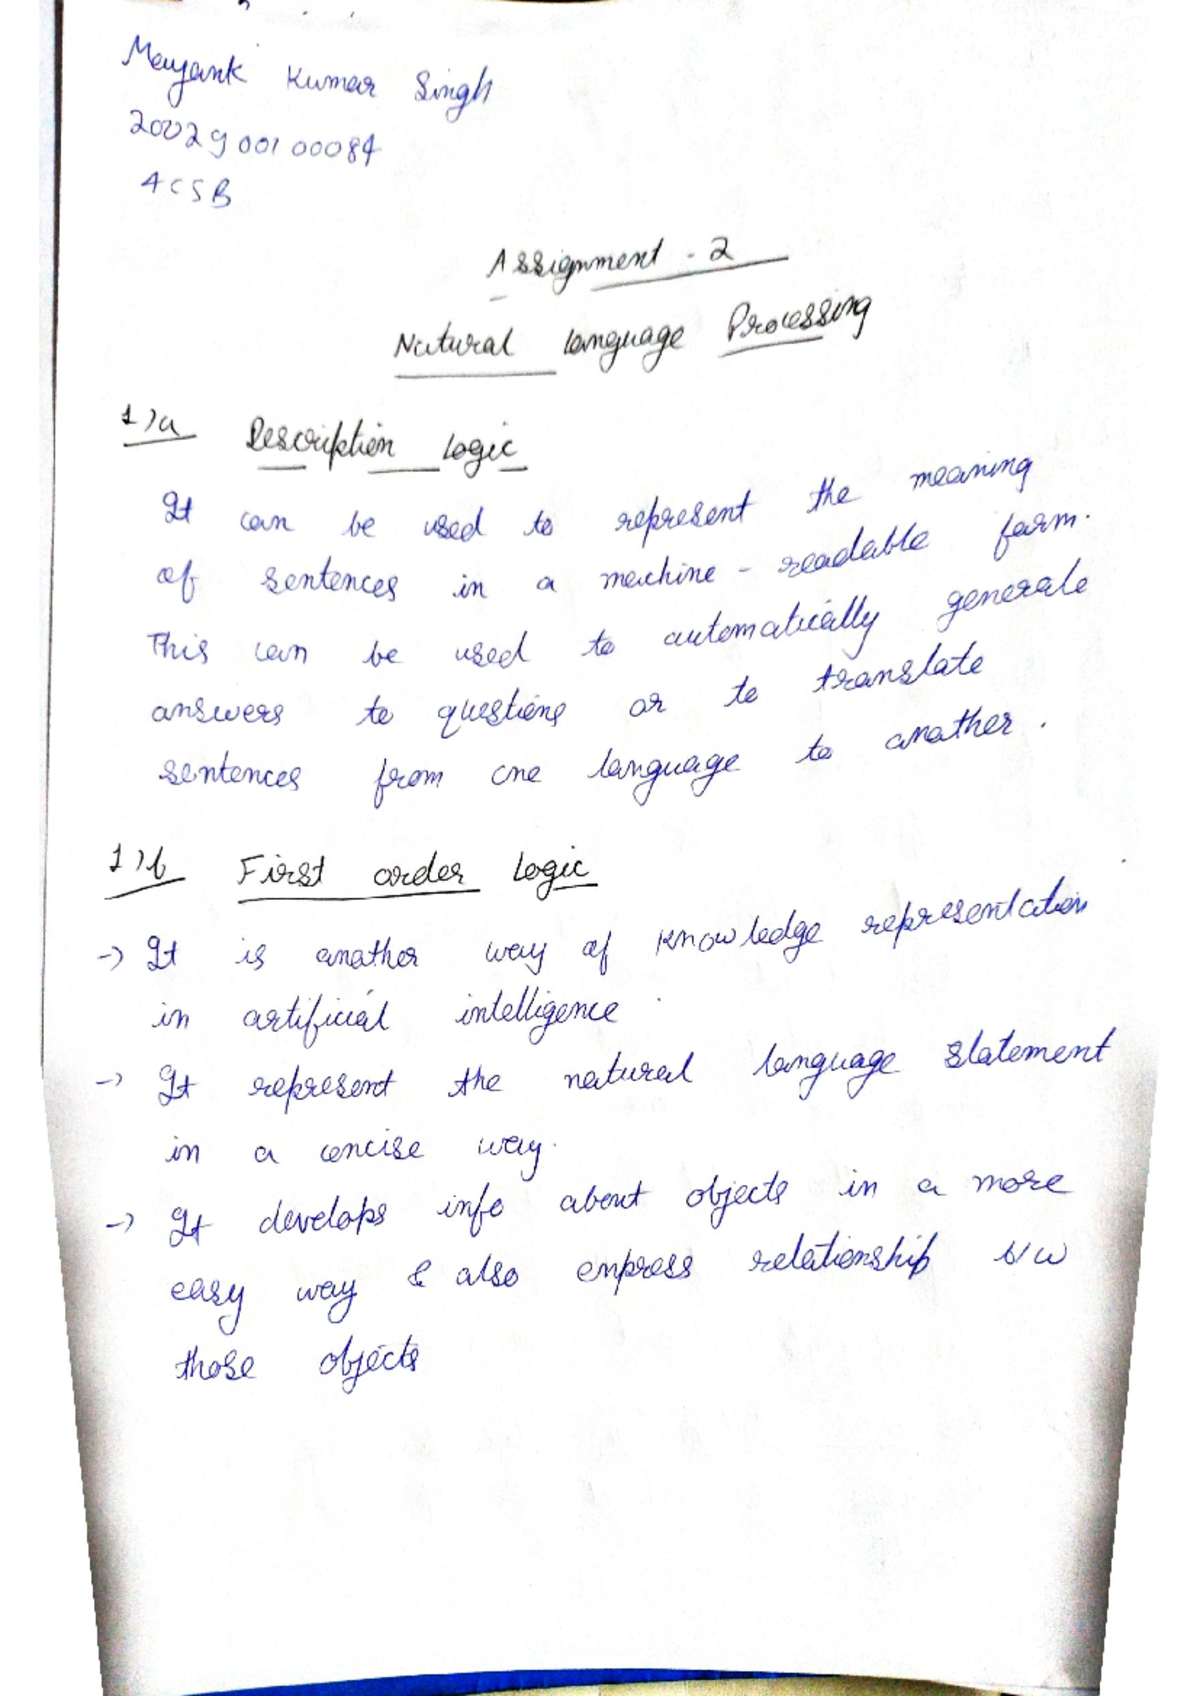 Mayank Kumar Singh
2002900100084
4CSB
Assignment - 2
Natural language Processing
1)a Description logic
It can be used to represent the meaning
of sentences in a machine - readable form.
This can be used to automatically generate
answers to questions or to translate
sentences from one language to another.
1)b First order logic
-> It is another way of knowledge representation
in artificial intelligence
-> It represent the natural language statement
in a concise way.
-> It develops info about objects in a more
easy way & also express relationship b/w
those objects